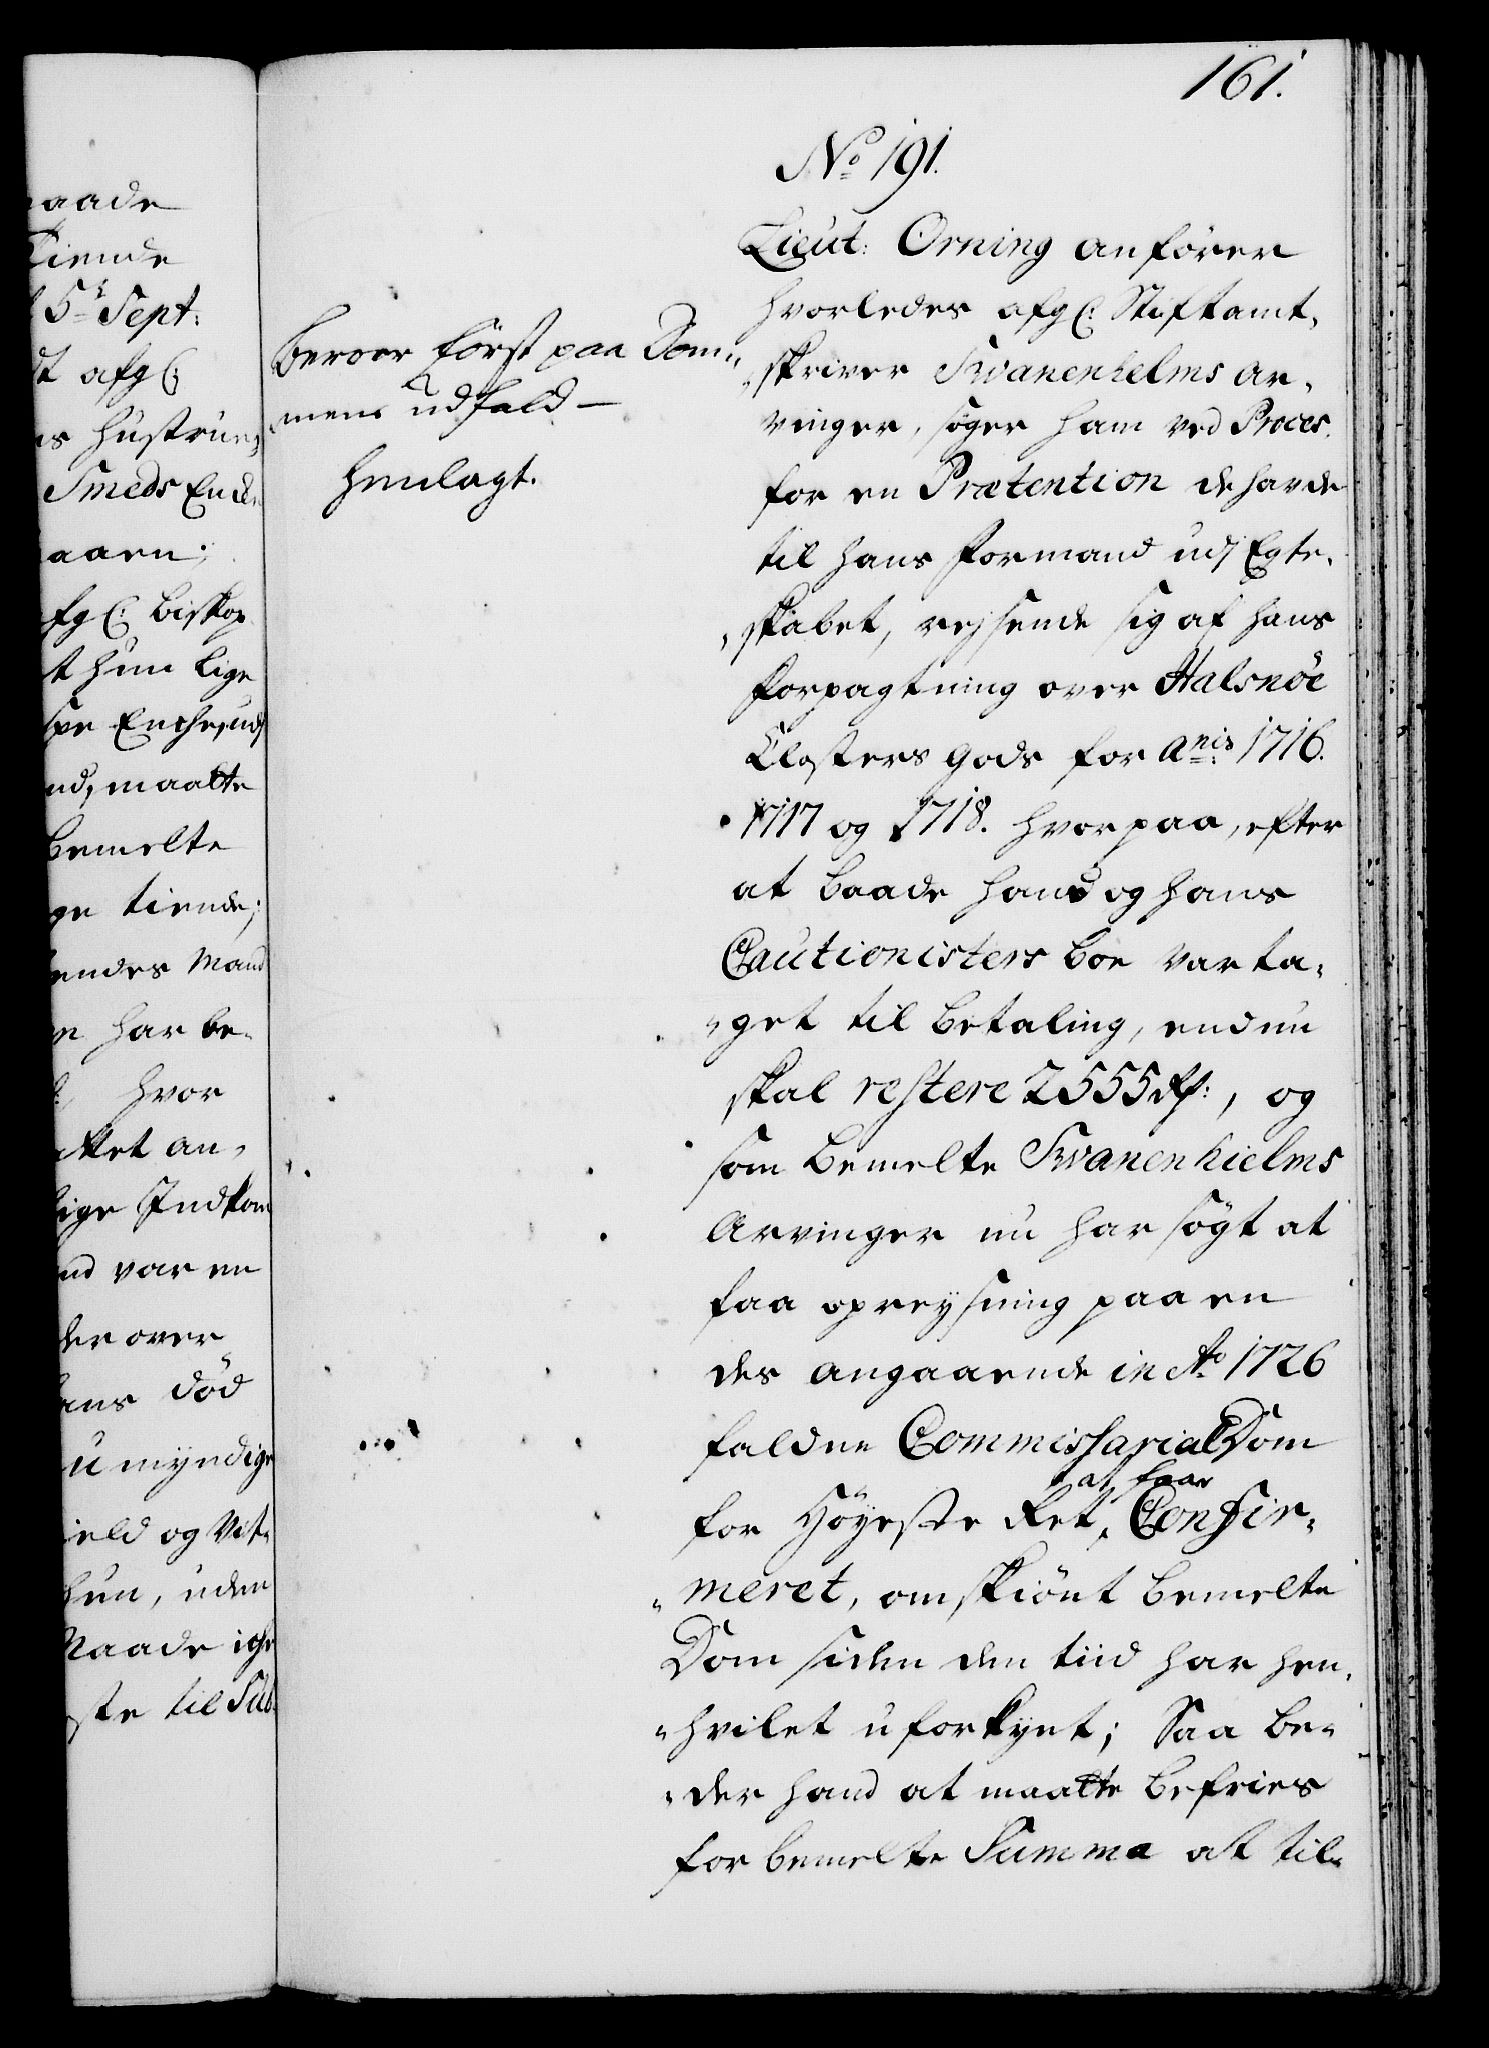 161.
No 191.
Lieut: Orning anfører
hvorledes afg: Stiftamt-
skriver Svanenhelms Ar-
vinger, søger ham ved Proces
for en Prætention de havde
til hans Formand udj Egte-
skabet, rejsende sig af hans
forpagtning over Halsnöe
Closters Gods for anis 1716.
1717 og 1718. hvorpaa, efter
at baade hans og hans
Cautionisters boe var ta-
get til betaling, endnu
skal restere 2555 Rd:, og
som bemelte Svanenhielms
Arvinger nu har søgt at
faa opreysning paa en
des angaaende in Ao 1726
falden Commissarial Dom
for Höyeste Ret, at faae Confir-
meret, omskiönt bemelte
Dom siden den tiid har hen-
hvilet uforkynt; Saa be-
der hand at maatte befries
for bemelte Summa at til-
beroer först paa Dom-
mens udfald –
henlagt.
aade
Tiende
5te Sept:
afg:
hustrue
Smeds Enke
aaren;
afg: biskop
hun lige
Enche, udj
maatte
bemelte
tiende;
Mand
har be-
hvor
an-
Indkom
var en
der over
død
umyndige
og Vit-
hun, uden
Naade iche
til Sub-